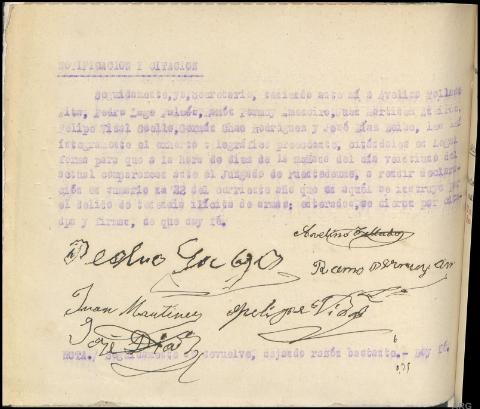 NOTIFICACION Y CITACION
Seguidamente, yo, Secretario, teniendo ante mí a Avelino
Pedro Lago
Felipe Vidal Coello, Germán Chao Rodriguez y José Días, les leí
integramente el exhorto telegráfico precedente, citándoles en legal
forma para que a la hora de diez de la mañana del día veintiuno del
actual comparezcan ante el Juzgado de Puentedeume, a rendir declara-
ción en sumario nº 22 del corriente año que en aquél se instruye por
el delito de tenencia ilícita de armas; enterados, se dieron por cita-
dos y firman, de que doy fé.
Avelino
Pedro Lago
Ramon
Juan Martinez
Felipe Vidal
José Días
NOTA./ Seguidamente se devuelve, dejando razón bastante.- Doy fé.